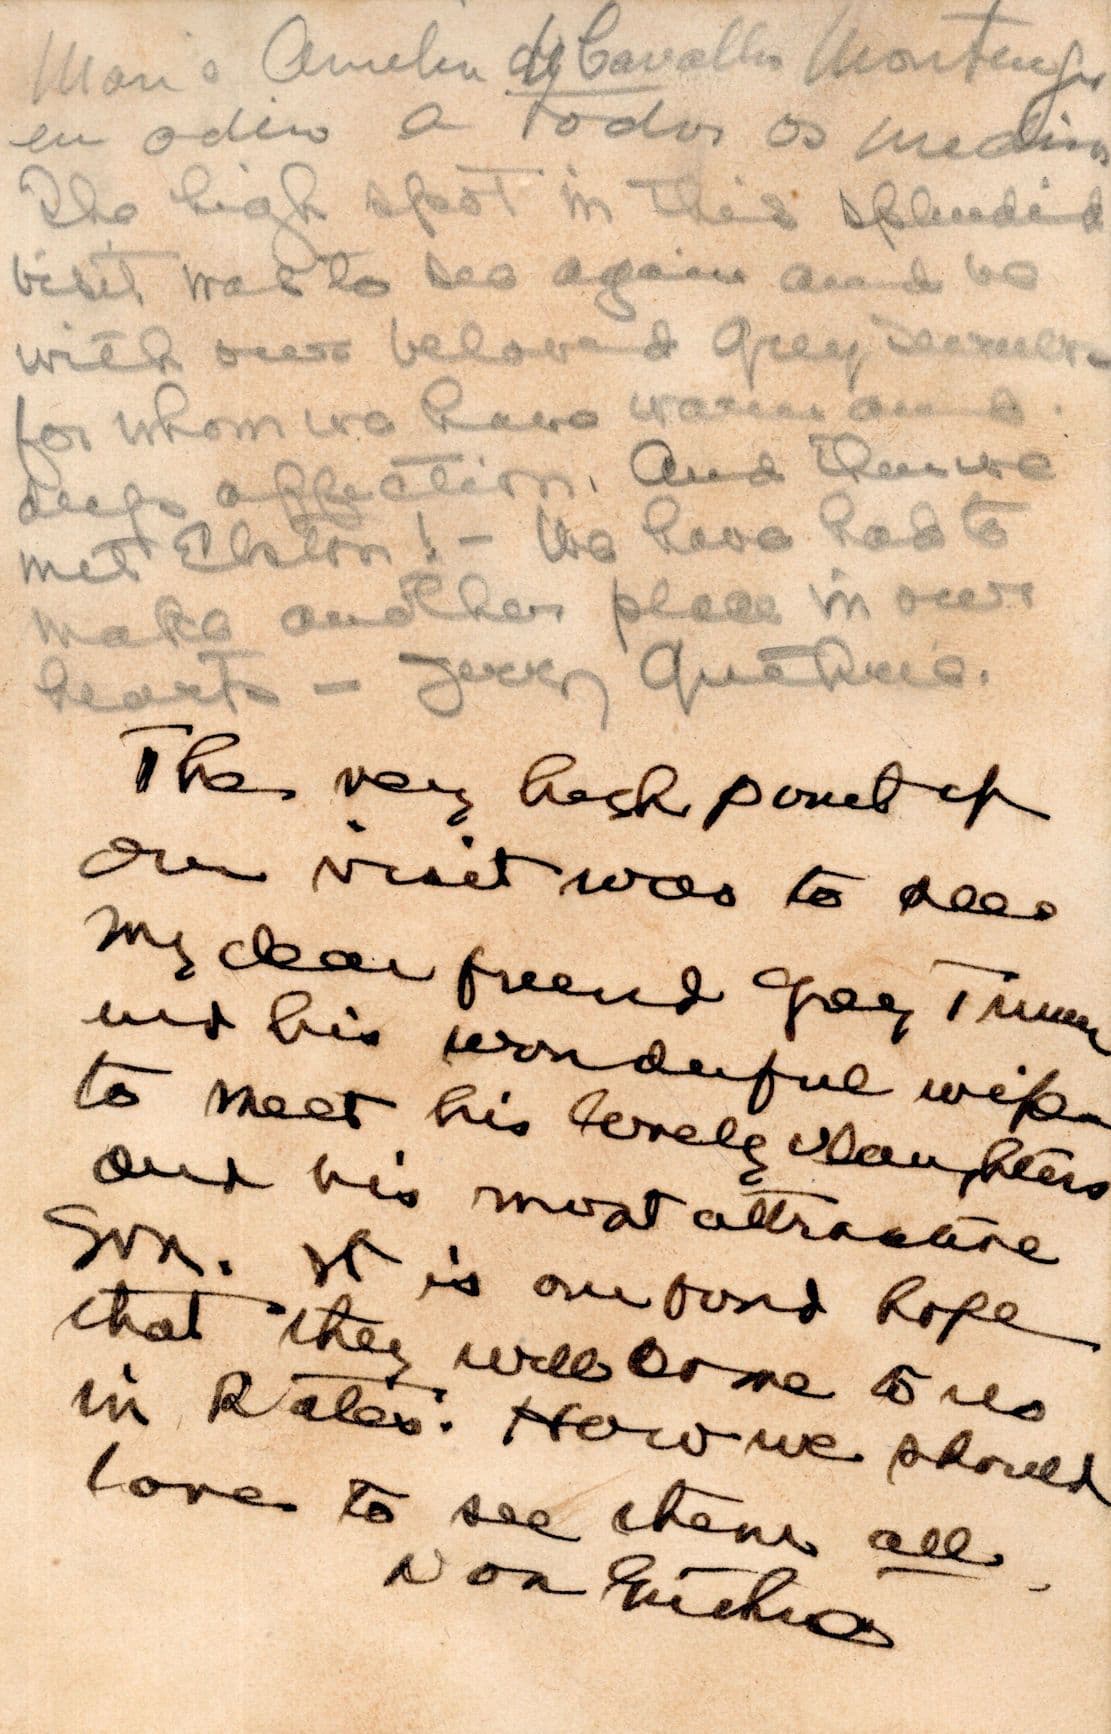 Maria Amelia de Cavalho Montenegro
em odio a todos os medicos
The high spot in this splendid
visit was to see again and be
with our beloved Grey Turners
for whom we have warm and
deep affection. And then we
met Elston! – We have had to
make another place in our
hearts – Jerry Guthrie.
The very high point of
our visit was to see
my dear friend Grey Turner
and his wonderful wife
to meet his lovely daughters
and his most attractive
son. It is our fond hope
that they will come to us
in States. How we should
love to see them all.
Don Guthrie